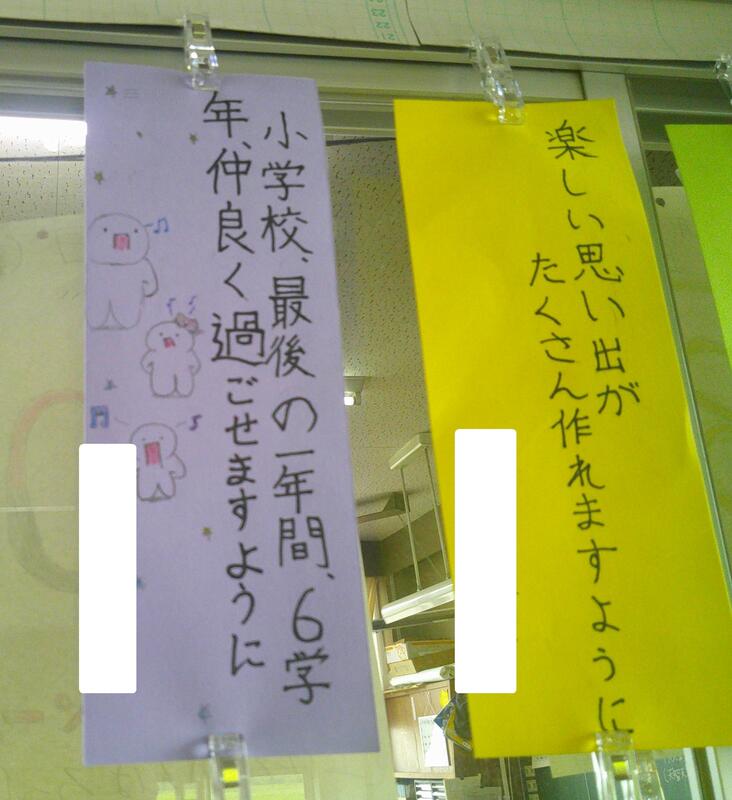 小学校、最後の一年間、6学
年、仲良く過ごせますように
楽しい思い出が
たくさん作れますように
21
22
23